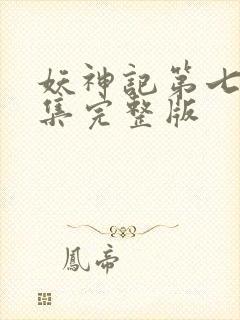 妖神記第七
集完整版
鳳帝